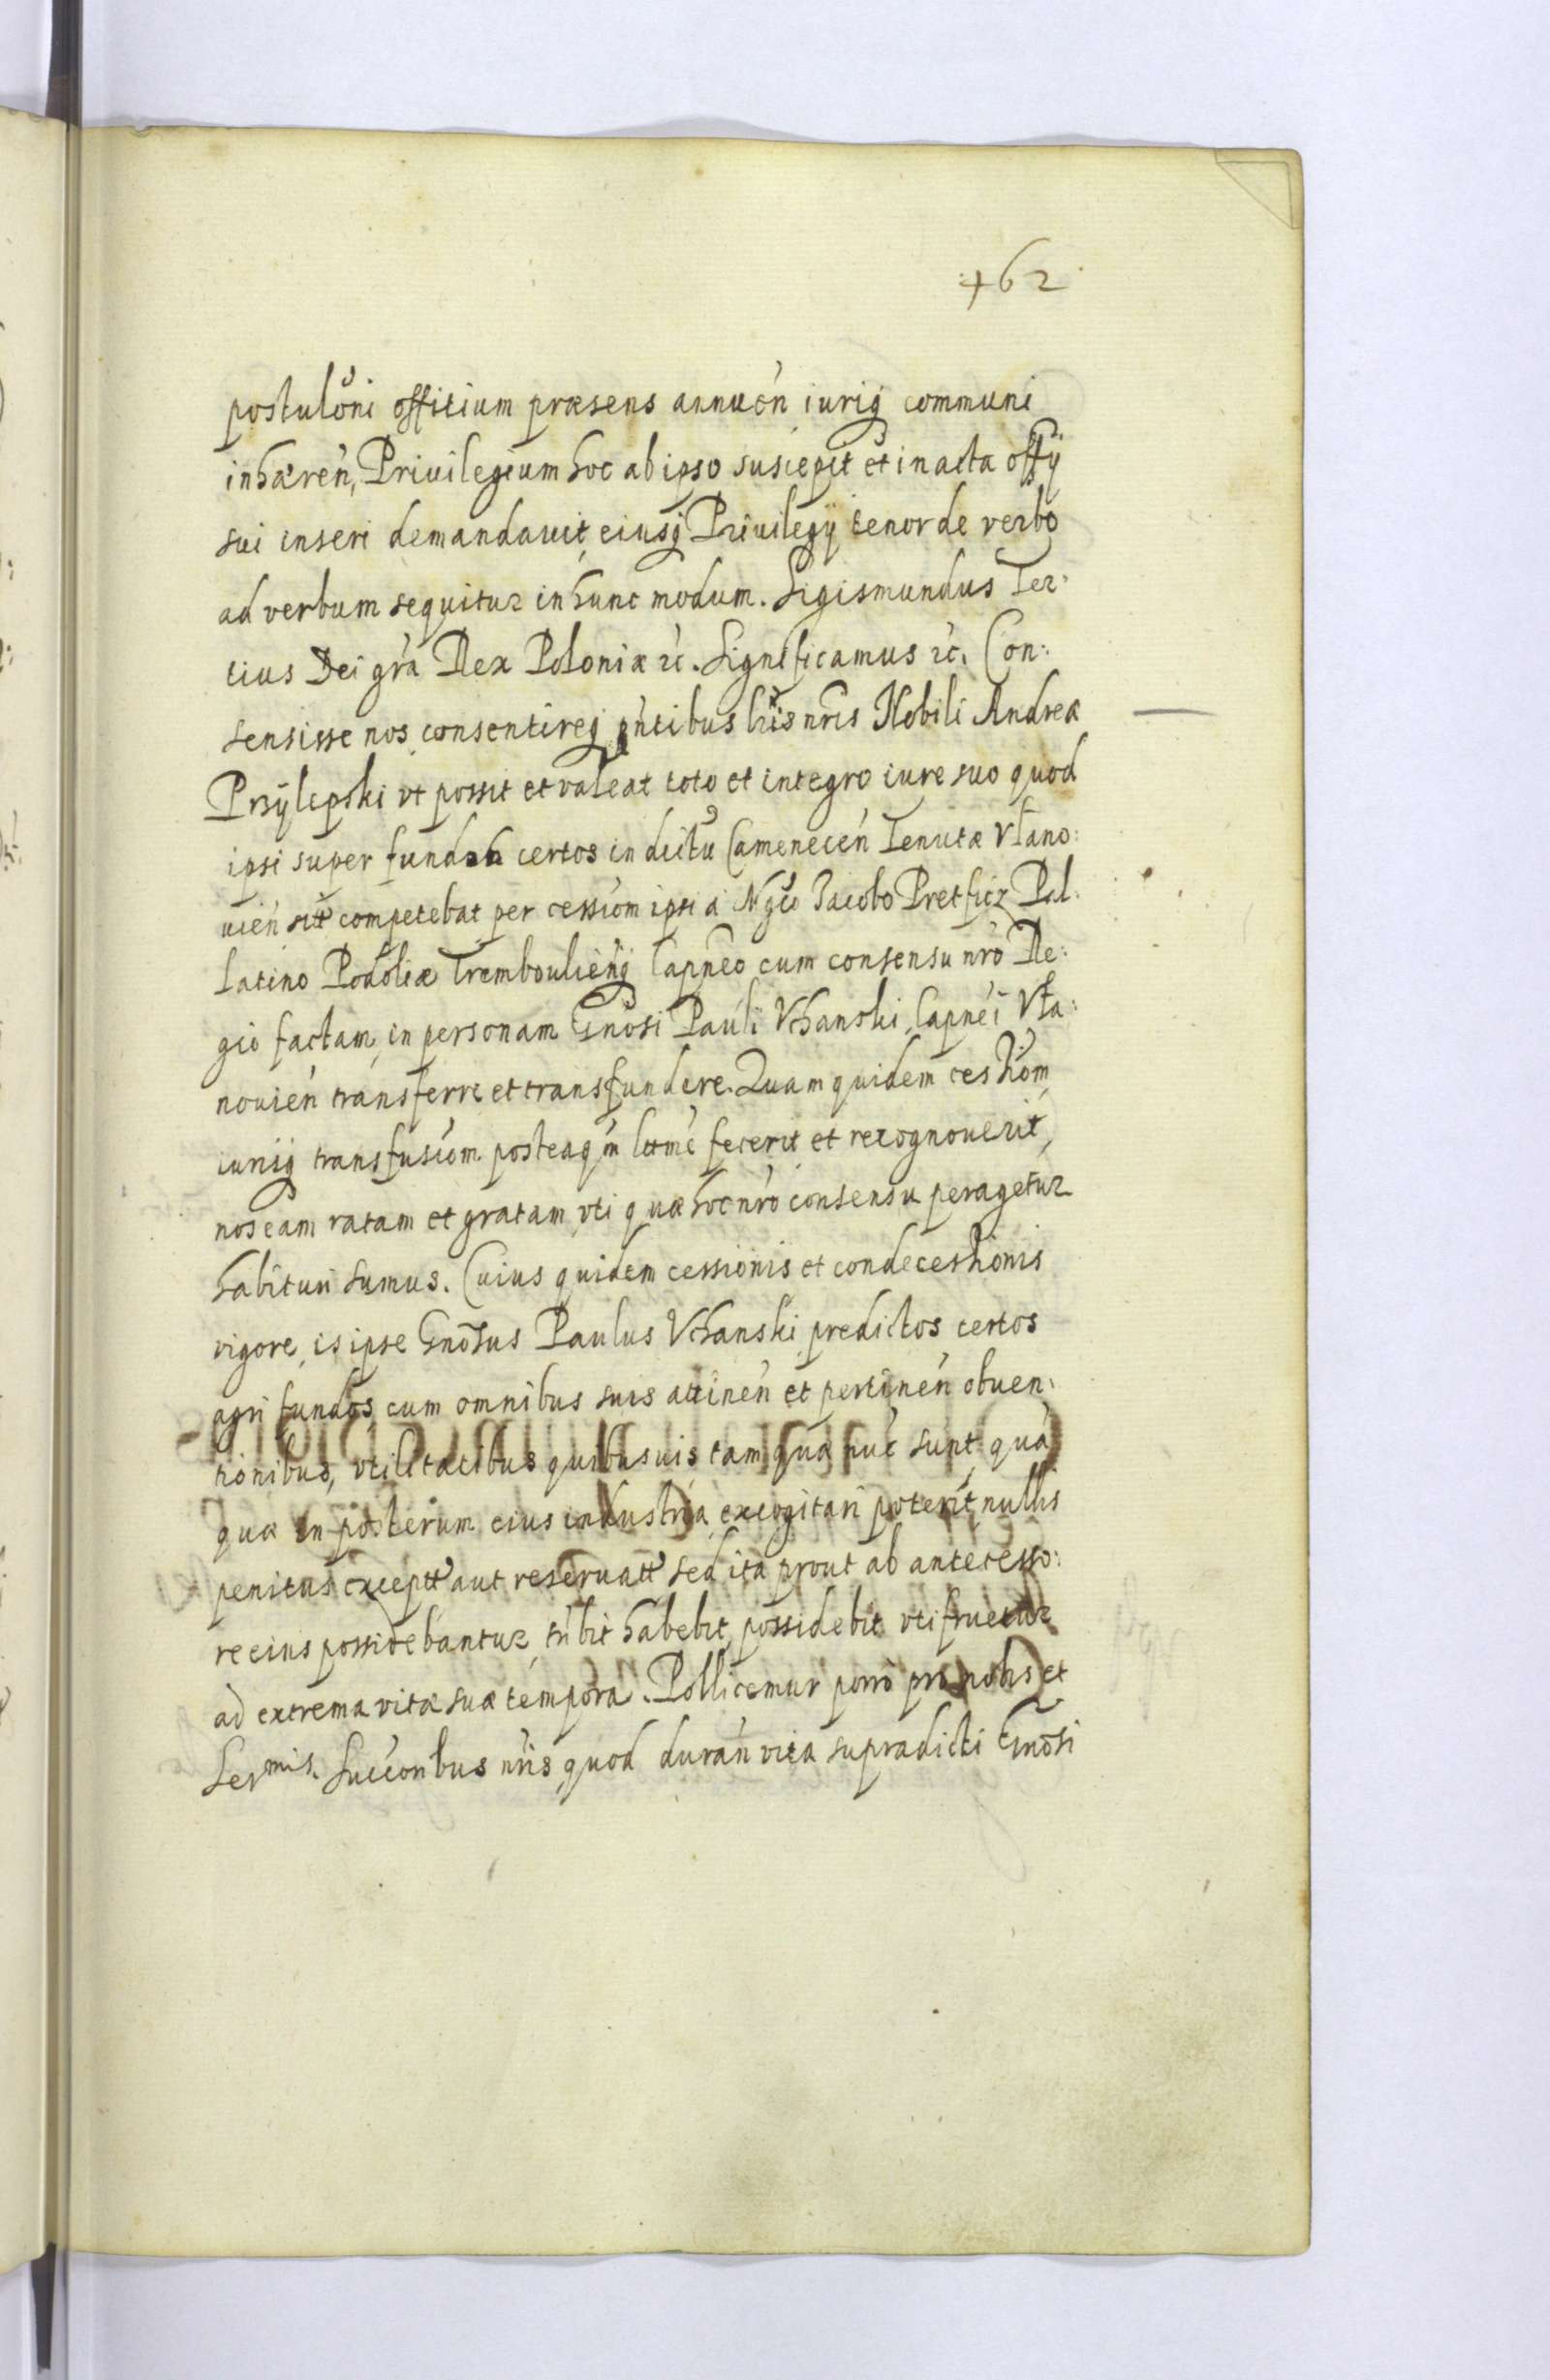 462
postulōni offitium præsens annuen̄ iuriq̨ communi
inhæren̄, Priuilegium hoc ab ipso suscepit et in acta offij
sui inseri demandauit, eiusq̨ Priuilegij tenor de verbo
ad verbum sequitur in hunc modum. Sigismundus Ter:
tius Dei gr̄a Rex Poloniæ &c. Significamus &c. Con:
sensisse nos, consentireq̨ pn̄tibus lr̄is nr̄is Nobili Andreæ
Przÿlepski vt possit et valeat toto et integro iure suo quod
ipsi super certos in dcītu Camenecen̄ Tenutæ Vłano:
uien̄ competebat per cessiōm ipsi à Mgc̄o Jacobo Pretficz Pal:
latino Podoliæ Trembouliēnq̨ Capn̄eo cum consensu nr̄o Re:
gio factam, in personam Gn̄osi Pauli Vchanski, Capn̄ei Vła:
nouien̄ transferre et transfundere. Quam quidem cessiōm,
iurisq̨ transfusiōm posteaq̄m ltm̄e fecerit et recognouerit,
nos eam ratam et gratam, vti quæ hoc nr̄o consensu peragetur
habituri sumus. Cuius quidem cessionis et condecessionis
vigore, is ipse Gn̄osus Paulus Vchanski, predictos certos
agri fundos, cum omnibus suis attinen̄ et pertinen̄ obuen:
tionibus, vtilitatibus quibusuis, tam quæ nūc sunt, quā
quæ in posterum eius industria excogitari poterit, nullis
penitus exceptt aut reseruatt sed ita prout ab antecesso:
re eius possidebantur, tn̄bit habebit, possidebit vtifruetur
ad extrema vitæ suæ tempora. Pollicemur porro pro nobis et
Ser^mis. Succ̄oribus nr̄is, quod duran̄ vita supradicti Gn̄osi